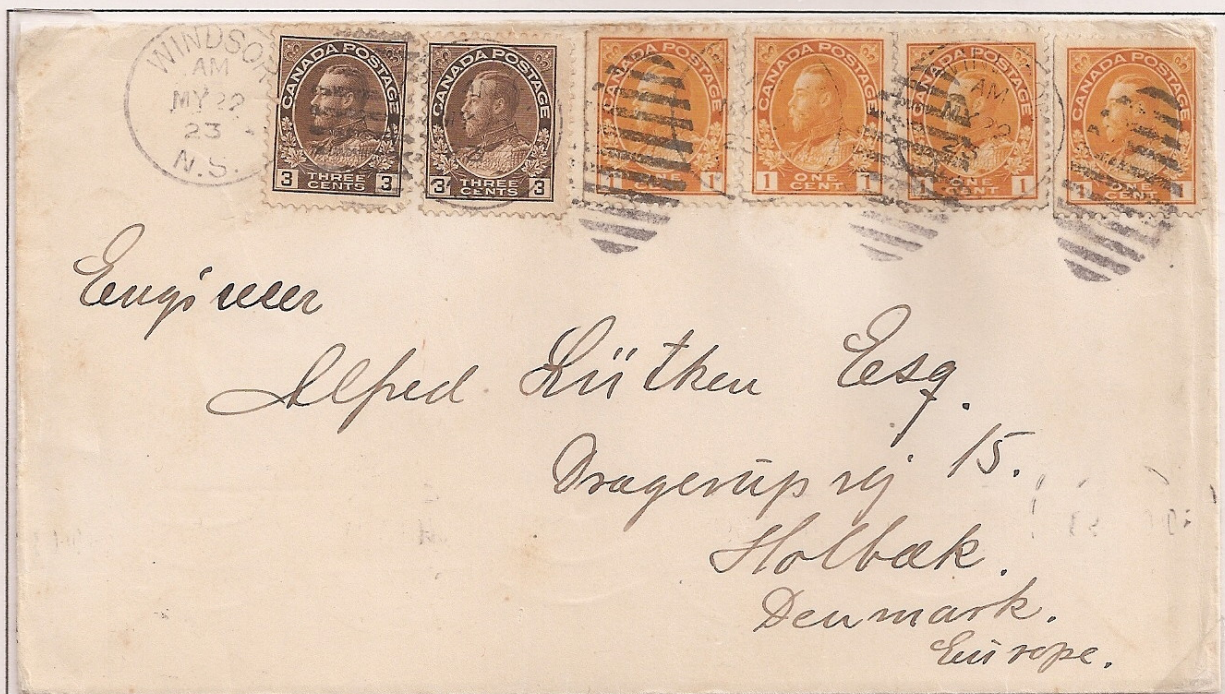 WINDSOR
AM
MY 22
23
N.S.
CANADA POSTAGE
3 THREE CENTS 3
CANADA POSTAGE
3 THREE CENTS 3
CANADA POSTAGE
1 ONE CENT 1
CANADA POSTAGE
1 ONE CENT 1
CANADA POSTAGE
1 ONE CENT 1
AM
MY 22
CANADA POSTAGE
1 ONE CENT 1
Engineer
Alfred Lüthen Esq.
Dragerupvej 15.
Holbæk.
Denmark.
Europe.